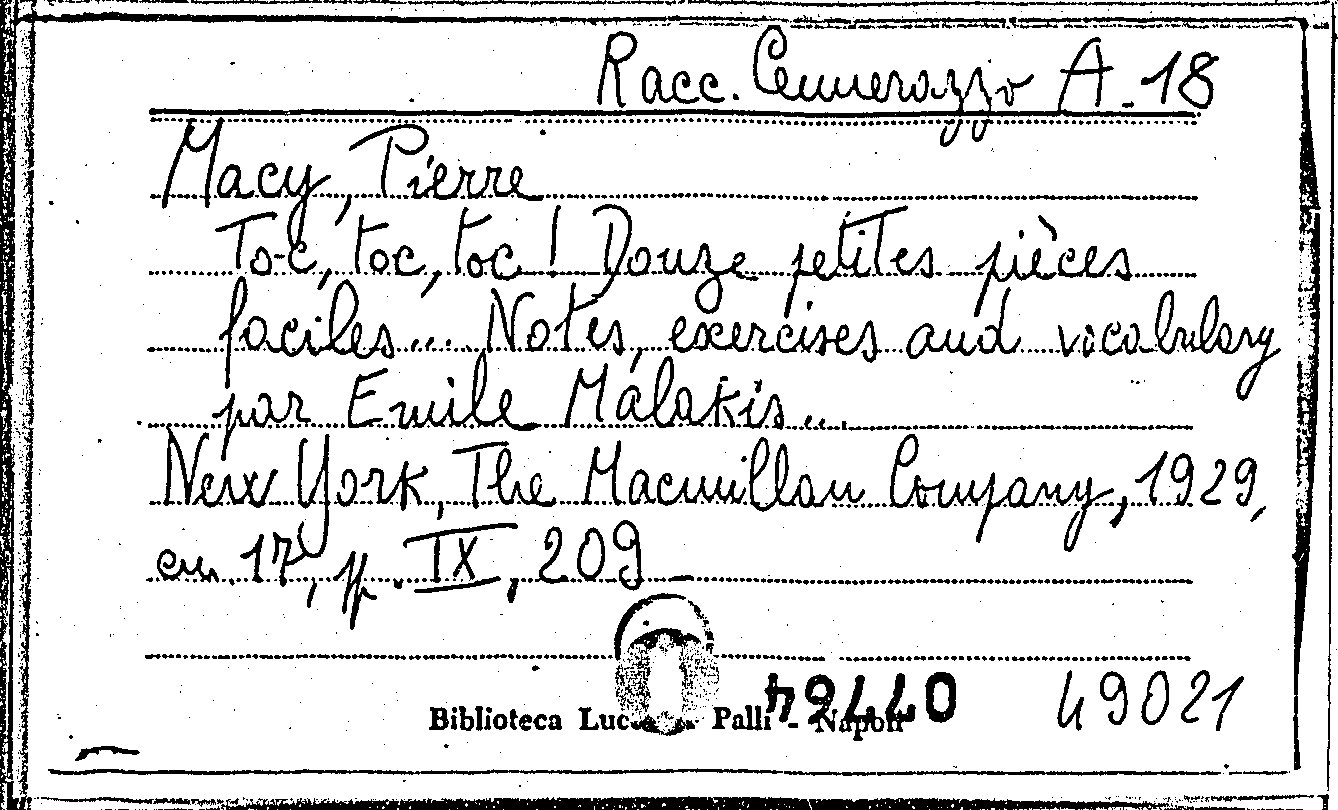 Racc. Cennerazzo A. 18
Macy, Pierre
Toc, toc, toc! Douze petites pièces
faciles... Notes, exercises and vocabulary
par Emile Malakis...
New York, The Macmillan Company, 1929,
cm. 17, pp. IX, 209
Biblioteca Palli - Napoli
49021